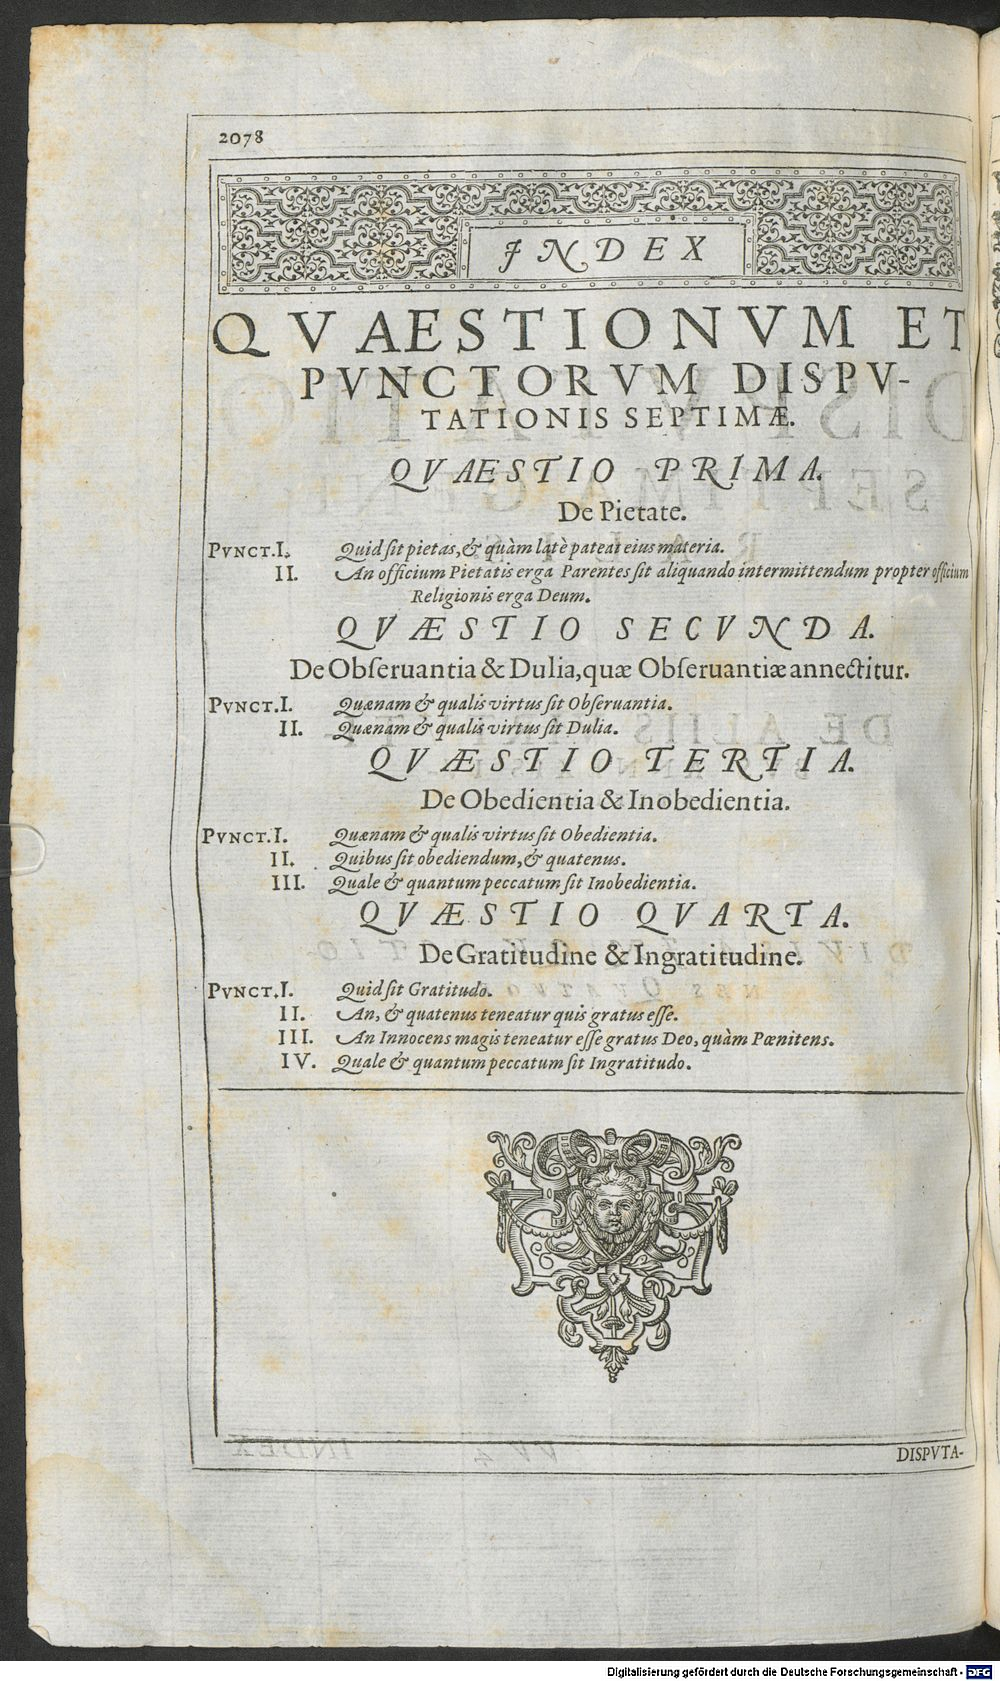 2078
INDEX
QVAESTIONVM ET
PVNCTORVM DISPV-
TATIONIS SEPTIMÆ.
QVAESTIO PRIMA.
De Pietate.
PVNCT.I. Quid ſit pietas, & quàm latè pateat eius materia.
II. An officium Pietatis erga Parentes ſit aliquando intermittendum propter officium
Religionis erga Deum.
QVÆSTIO SECVNDA.
De Obſeruantia & Dulia, quæ Obſeruantiæ annectitur.
PVNCT.I. Quænam & qualis virtus ſit Obſeruantia.
II. Quænam & qualis virtus ſit Dulia.
QVÆSTIO TERTIA.
De Obedientia & Inobedientia.
PVNCT.I. Quænam & qualis virtus ſit Obedientia.
II. Quibus ſit obediendum, & quatenus.
III. Quale & quantum peccatum ſit Inobedientia.
QVÆSTIO QVARTA.
De Gratitudine & Ingratitudine.
PVNCT.I. Quid ſit Gratitudo.
II. An, & quatenus teneatur quis gratus eſſe.
III. An Innocens magis teneatur eſſe gratus Deo, quàm Pœnitens.
IV. Quale & quantum peccatum ſit Ingratitudo.
DISPVTA-
Digitalisierung gefördert durch die Deutsche Forschungsgemeinschaft - DFG